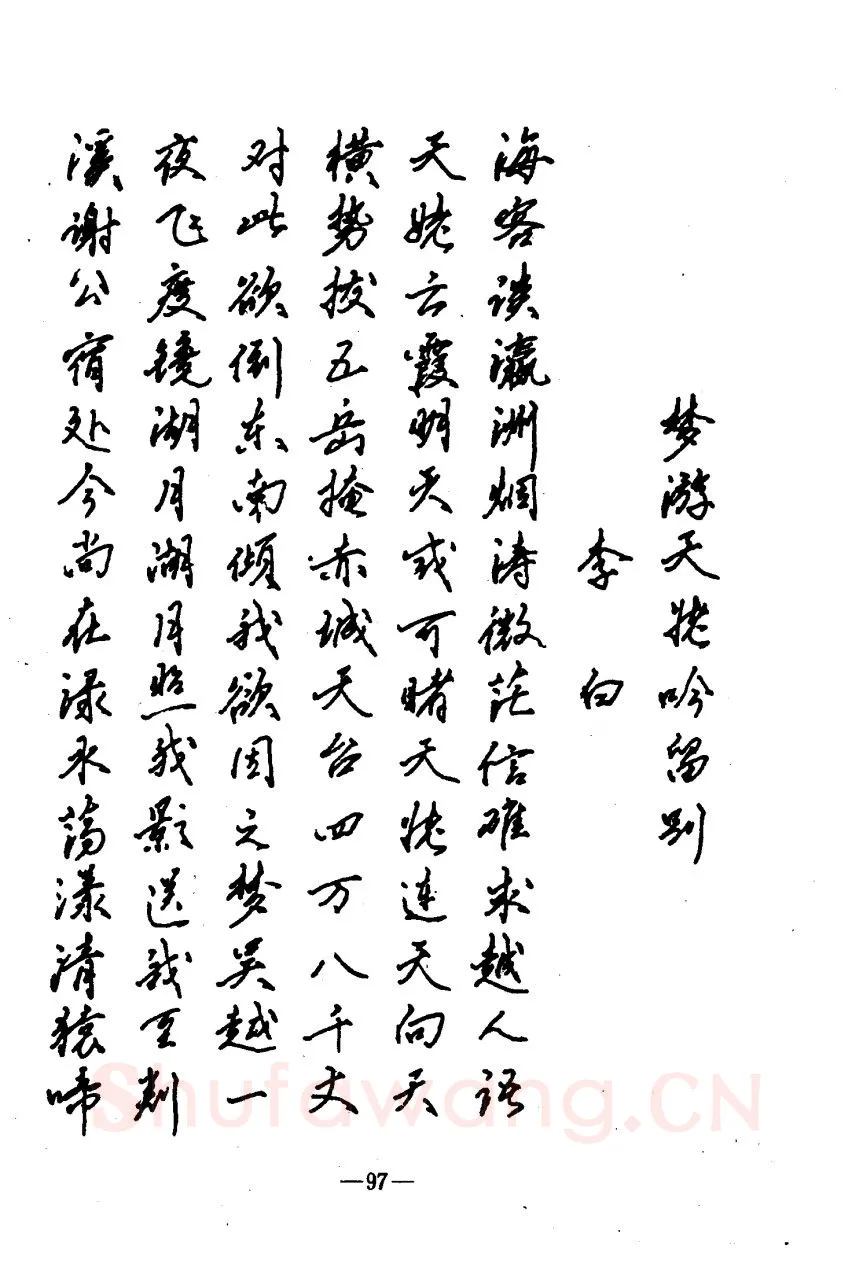 梦游天姥吟留别
李白
海客谈瀛洲烟涛微茫信难求越人语
天姥云霞明灭或可睹天姥连天向天
横势拔五岳掩赤城天台四万八千丈
对此欲倒东南倾我欲因之梦吴越一
夜飞度镜湖月湖月照我影送我至剡
溪谢公宿处今尚在渌水荡漾清猿啼
—97—
Shufawang.CN